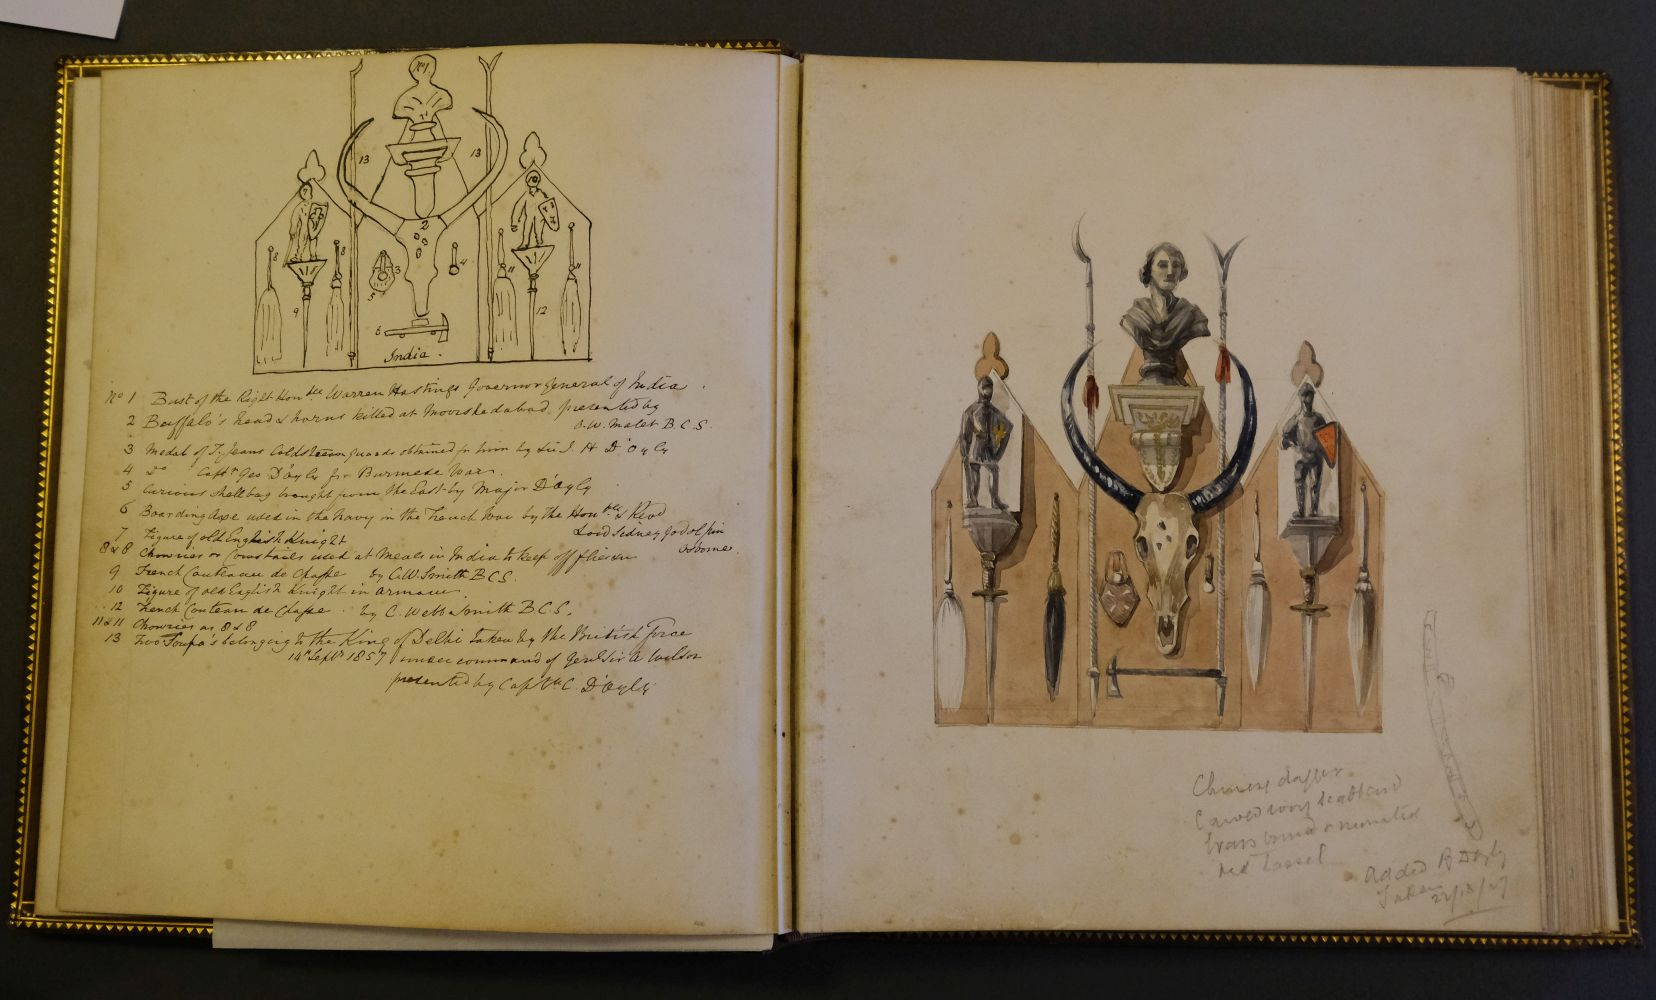 No 1
13
13
2
7
10
8
8
3
4
5
11
11
9
6
12
India.
No 1 Bust of the Right Honble Warren Hastings Governor General of India.
2 Buffalo's head & horns killed at Moorshedabad presented by
O.W. Malet B.C.S.
3 Medal of Coldstream guards obtained for him by Sir J. H D'Oyly
4 Do Captn Geo D'Oyly for Burmese War.
5 Curious shell bag brought from the East by Major D'Oyly
6 Boarding Axe used in the Navy in the French War by the Honble & Revd
Lord Sidney Godolphin
Osborne.
7 Figure of old English Knight
8 & 8 Chowries or Cowstails used at Meals in India to keep off flies
9 French Couteau de Chasse by C.W. Smith B.C.S.
10 Figure of old English Knight in armour.
12 French Couteau de Chasse by C. Webb Smith B.C.S.
11 & 11 Chowries as 8 & 8
13 Two belonging to the King of Delhi taken by the British force
14th Septr 1857 under command of Genl Sir A Wilson
presented by Captn C. D'Oyly
Chinese dagger
Carved ivory scabbard
brass bound & mounted
red Tassel
added D'Oyly
Taken